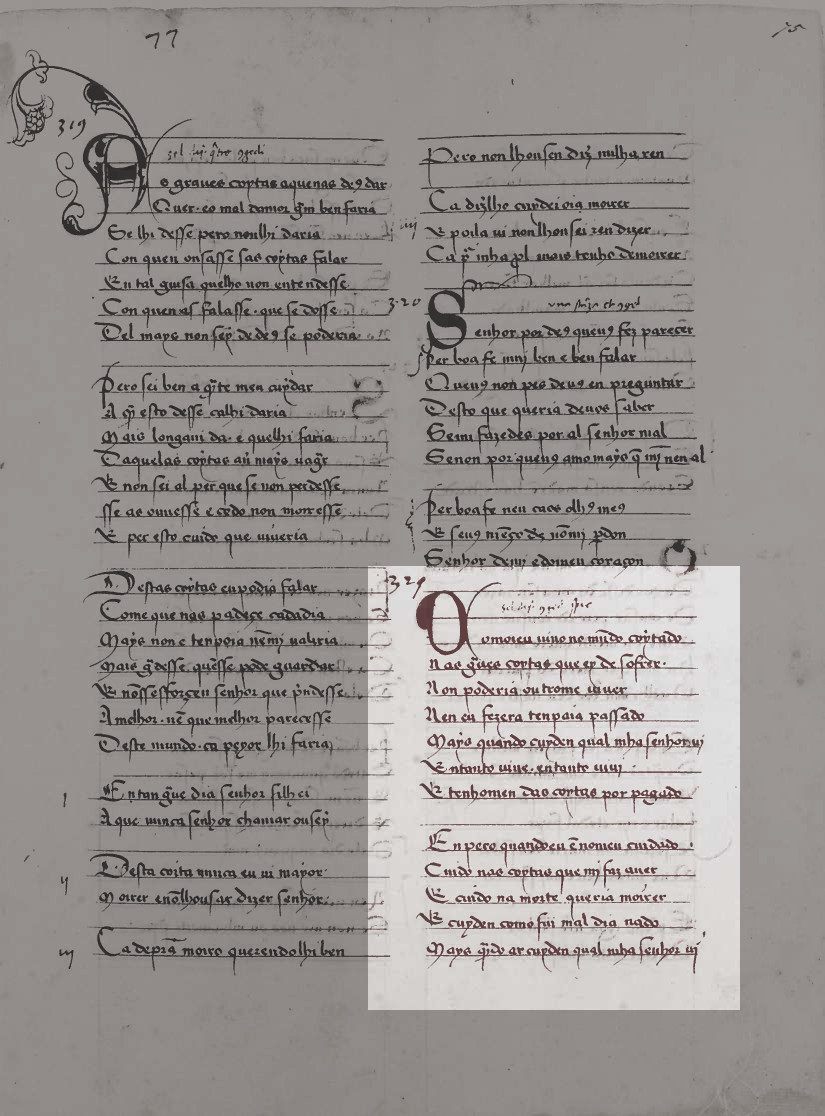 77
75
319
As graves coytas a quen as deꝯ dar
Quer eo mal damor gⁿm ben faria
Se lhi desse pero non lhi daria
Con quen ousasse sas coytas falar
En tal guisa quelho non entendesse
Con quen as falasse que se doesse
Del mays non sey de deꝯ se poderia
Pero sei ben a q̃te meu cuydar
A q̃ esto desse ca lhi daria
Mais longa uida e quelhi faria
Daquelas coytas au̾ mays uagar
E non sei al per que sen non perdesse
sse as ouuesse e cedo non moresse
E per esto cuido que uiueria
Destas coytas eu podia falar
Come quenas padeçe cada dia
Mays non e tenpo ia nẽmi ualiria
Mais g̃desse quẽsse pode guardar
E nõssesforçen senhor que p̃ndesse
A melhor nẽ que melhor paresesse
Deste mundo ca peyor lhi faria
En tan g̃ue dia senhor filhei
A que nunca senhor chamar ousey
Desta coita nunca eu ui mayor
Morrer enõlhousar dizer senhor
Ca de prã moiro querendolhi ben
Pero non lhousen diz̃ nulha ren
Ca dizlho cuydei oia morrer
E poila ui non lhousei ren dizer
Ca p̾ mha p̾l mais tenho de morrer
320
Senhor por deꝯ queuꝯ fez pareçer
Per boa fe mui ben e ben falar
Queuꝯ non pes deuꝯ en preguntar
Desto que queria deuos saber
Semi fazedes por al senhor mal
Senon por queuꝯ amo mays q̃ mĩ nen al
Per boa fe neu caes olhꝯ meꝯ
E seuꝯ m̃eço dẽ nõmi p̾don
Senhor demi edomeu coraçon
321
Quomoieu uiuo no mũdo coytado
nas g̃ues coytas que ey de sofrer
Non poderia outrome uiuer
Nen eu fezera tenpo ia passado
Mays quando cuyden qual mha senhor ui
Entanto uiue entanto uiui
E tenhomen das coytas por pagado
En pero quandoeu ẽnomeu cuidado
Cuido nas coytas que mi faz auer
E cuido na morte queria morrer
E cuyden como fui mal dia nado
Mays q̃do ar cuyden qual mha senhor ui